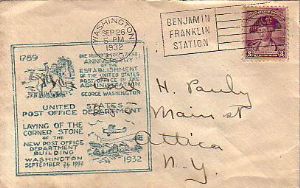 WASHINGTON
SEP 26
PM
1932
BENJAMIN
FRANKLIN
STATION
1789
ANNIVERSARY
OF THE
ESTABLISHMENT
OF THE UNITED STATES
POST OFFICE
GEORGE WASHINGTON
UNITED STATES
POST OFFICE DEPARTMENT
LAYING OF THE
CORNER STONE
OF THE
NEW POST OFFICE
DEPARTMENT
BUILDING
WASHINGTON
SEPTEMBER 26 1932
1932
H. Pauly
Main St
Attica
N.Y.